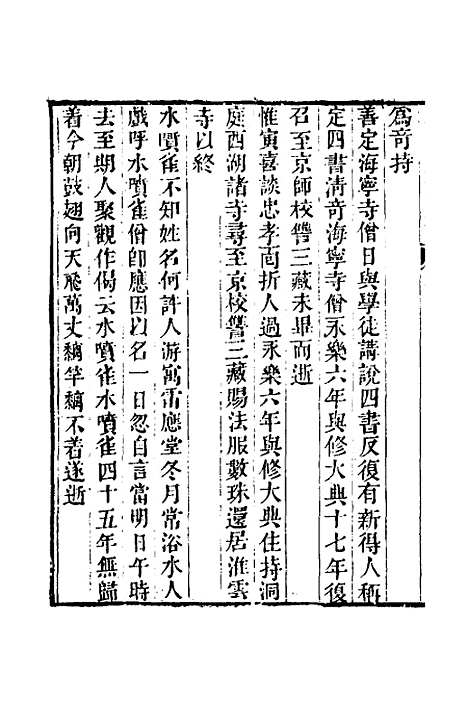 為奇持
善定海寧寺僧日與學徒講說四書反復有新得人稱
定四書淸奇海寧寺僧永樂六年與修大典十七年復
召至京師校讐三藏未畢而逝
惟寅喜談忠孝面折人過永樂六年與修大典住持洞
庭西湖諸寺尋至京校讐三藏賜法服數珠還居淮雲
寺以終
水噴雀不知姓名何許人游寓雷應堂冬月常浴水人
戲呼水噴雀僧卽應因以名一日忽自言當明日午時
去至期人聚觀作偈云水噴雀水噴雀四十五年無歸
着今朝鼓翅向天飛萬丈竿不着遂逝